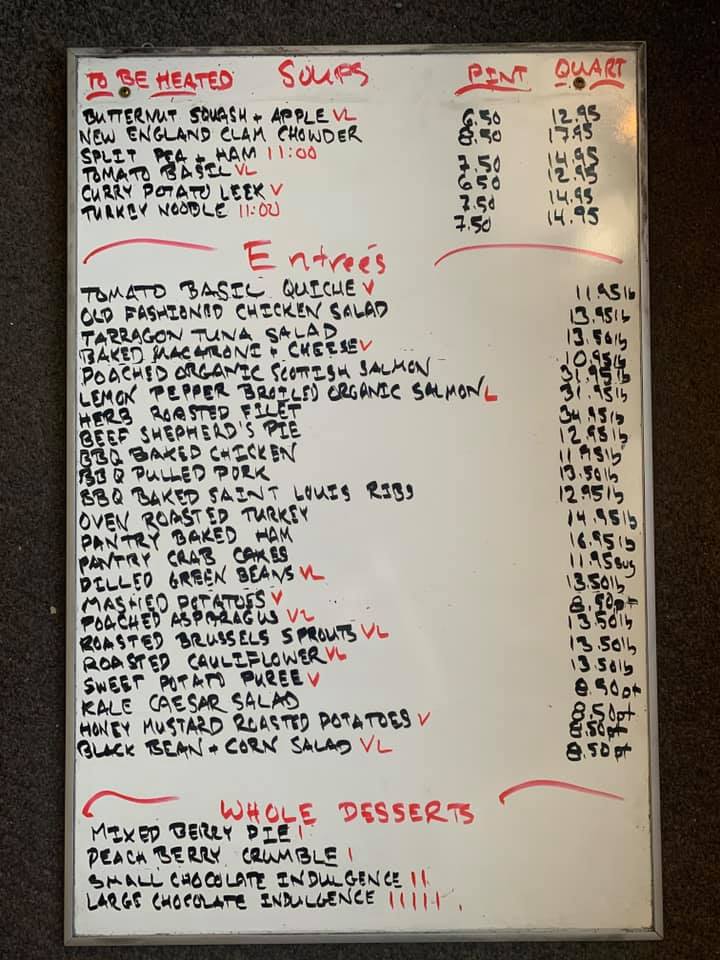 TO BE HEATED SOUPS PINT QUART
BUTTERNUT SQUASH + APPLE VL 6.50 12.95
NEW ENGLAND CLAM CHOWDER 8.50 17.95
SPLIT PEA + HAM 11:00 7.50 14.95
TOMATO BASIL VL 6.50 12.95
CURRY POTATO LEEK V 7.50 14.95
TURKEY NOODLE 11:00 7.50 14.95
Entreés
TOMATO BASIL QUICHE V 11.95lb
OLD FASHIONED CHICKEN SALAD 13.95lb
TARRAGON TUNA SALAD 13.50lb
BAKED MACARONI + CHEESE V 10.95lb
POACHED ORGANIC SCOTISH SALMON 31.95lb
LEMON PEPPER BROILED ORGANIC SALMON L 31.95lb
HERB ROASTED FILET 34.95lb
BEEF SHEPHERD'S PIE 12.95lb
BBQ BAKED CHICKEN 11.95lb
BBQ PULLED PORK 13.50lb
BBQ BAKED SAINT LOUIS RIBS 12.95lb
OVEN ROASTED TURKEY 14.95lb
PANTRY BAKED HAM 16.95lb
PANTRY CRAB CAKES 11.95
DILLED GREEN BEANS VL 13.50lb
MASHED POTATOES V 8.50pt
POACHED ASPARAGUS VL 13.50lb
ROASTED BRUSSELS SPROUTS VL 13.50lb
ROASTED CAULIFLOWER VL 13.50lb
SWEET POTATO PUREE V 8.50pt
KALE CAESAR SALAD 8.50pt
HONEY MUSTARD ROASTED POTATOES V 8.50pt
BLACK BEAN + CORN SALAD VL 8.50pt
WHOLE DESSERTS
MIXED BERRY PIE I
PEACH BERRY CRUMBLE I
SMALL CHOCOLATE INDULGENCE II
LARGE CHOCOLATE INDULGENCE IIIII